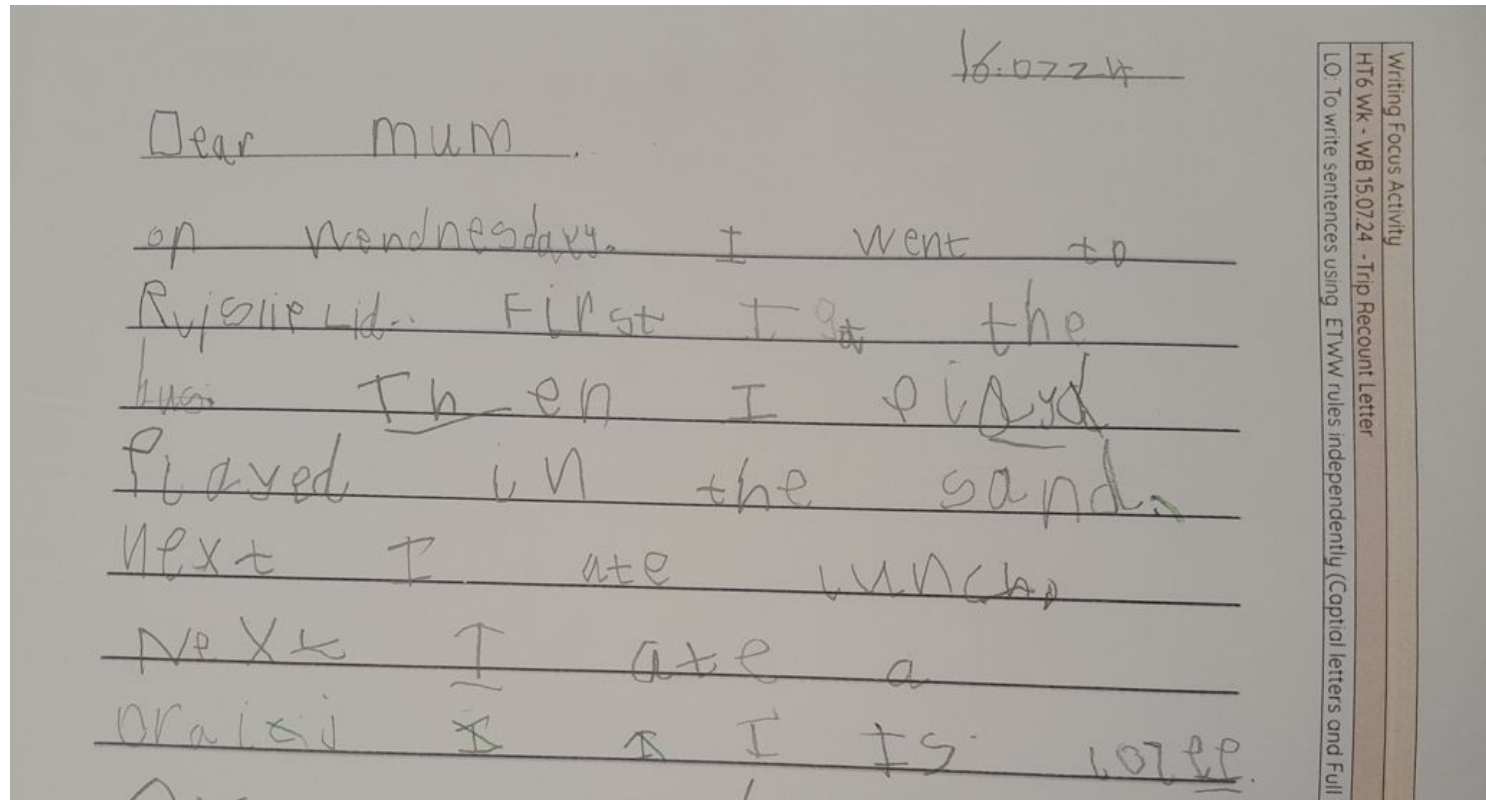 16.0724
Dear mum.
on Wendnesdayy. I went to
Rujslip Lid.. First I got the
bus. Then I played
Played in the sand.
Next I ate lunch.
Next I ate a
I Is
Writing Focus Activity
HT6 Wk - WB 15.07.24 - Trip Recount Letter
LO: To write sentences using ETWW rules independently (Captial letters and Full